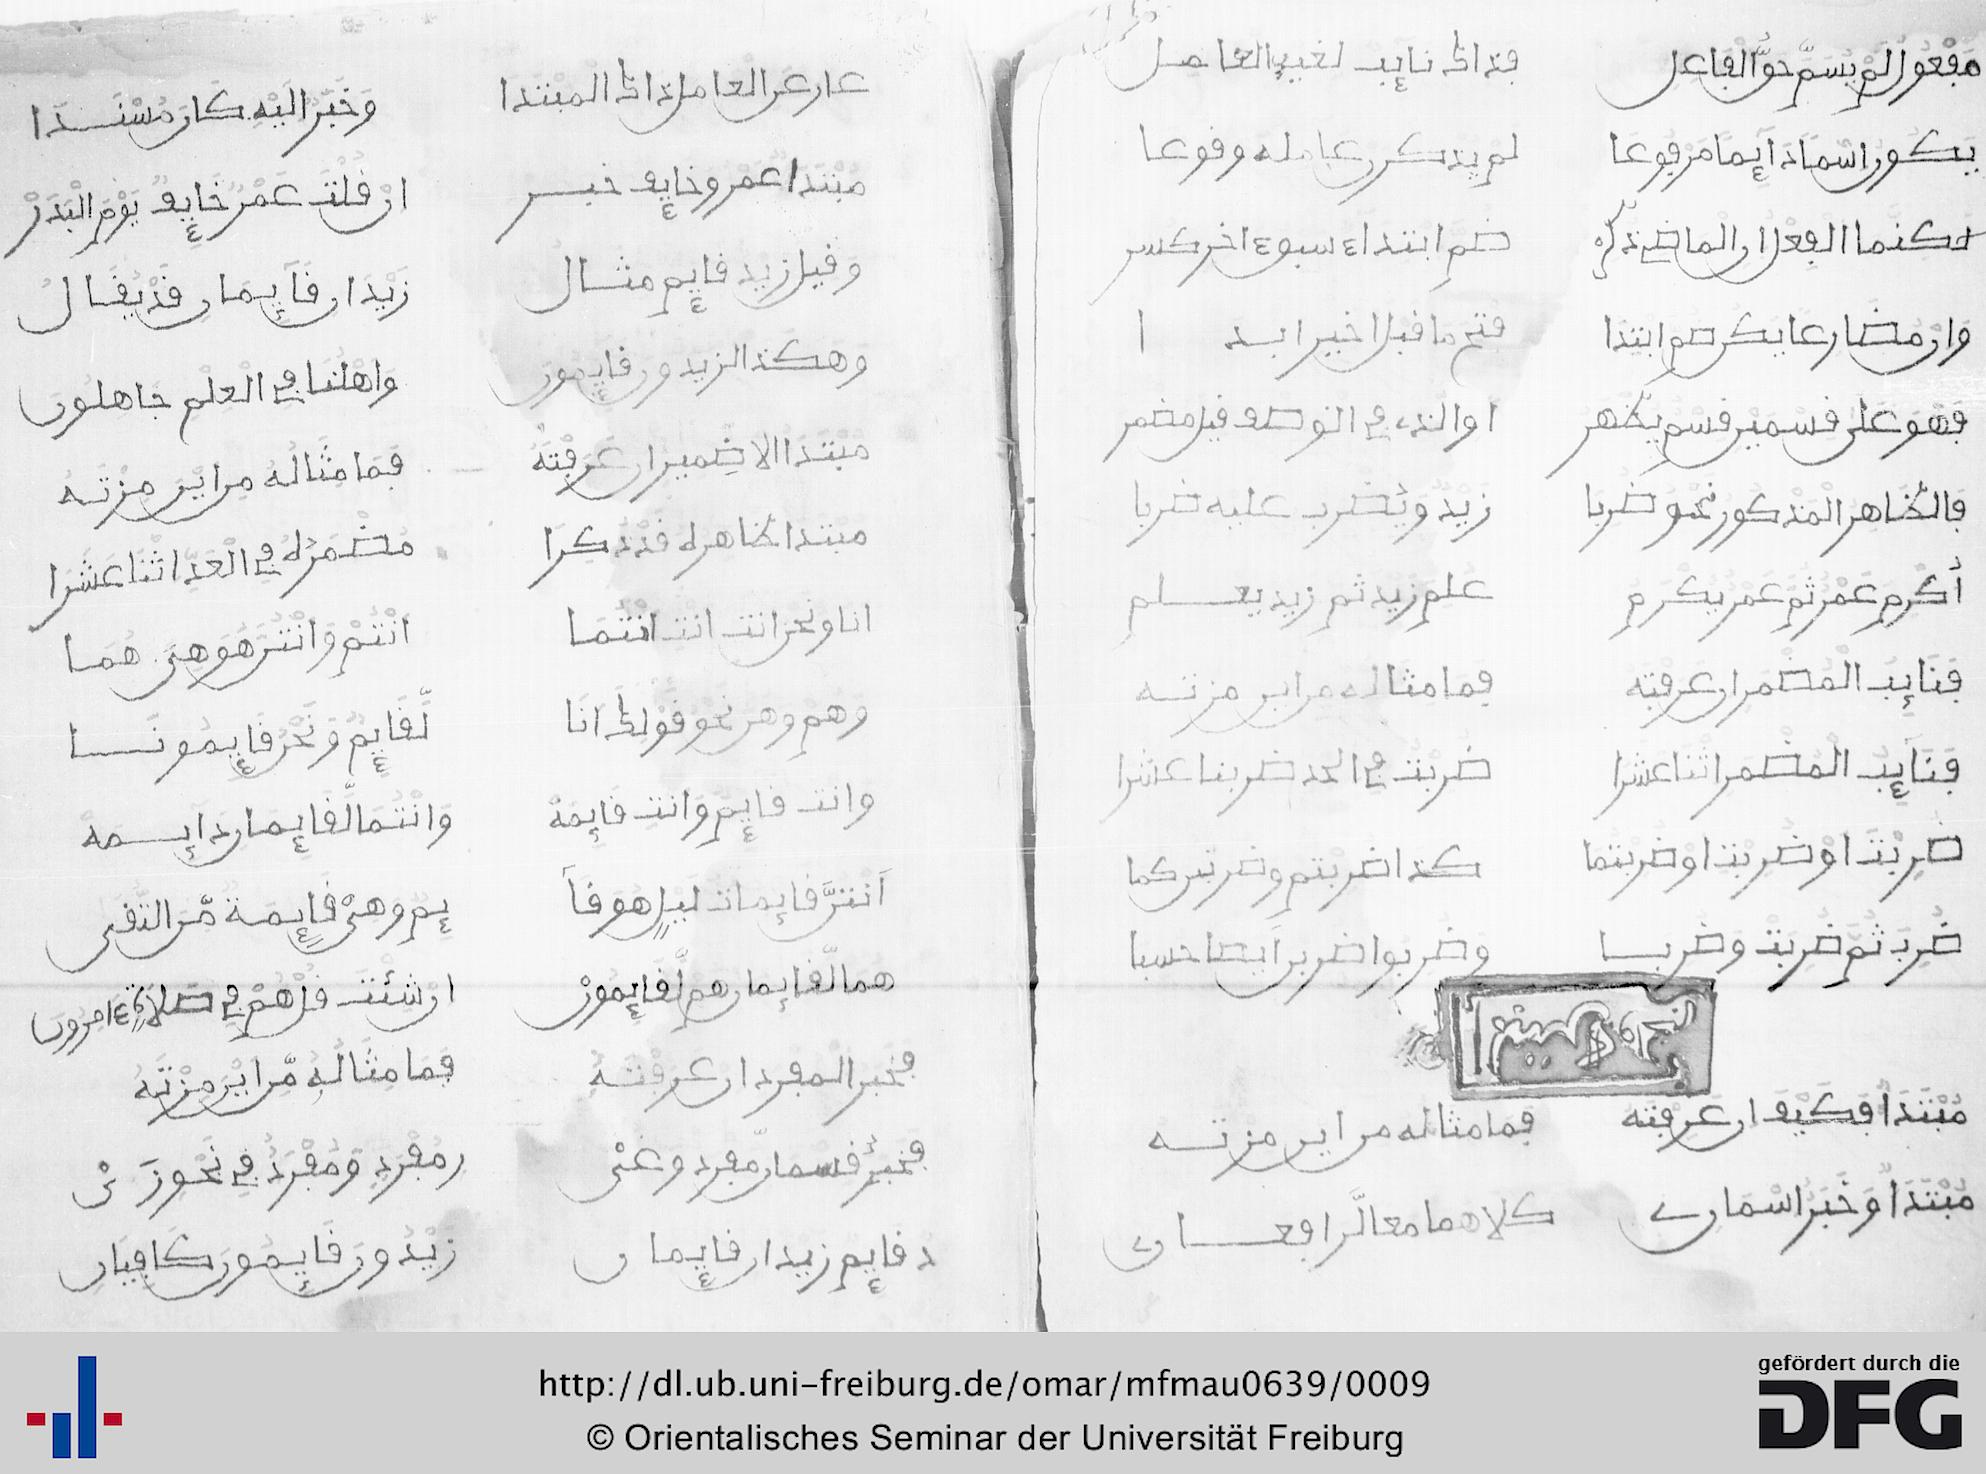 مفعول لم يسم حق الفاعل فذاك نايب لغير العامل
يكون اسما دايما مرفوعا لم يذكرن عامله وقوعا
لكنما الفعل ان الماضي ذكر ضم ابتداء سبق ء اخر كسر
وان مضارعا يكن ضم ابتدا فتح ما قبل اخير ابدا
فهو على قسمين قسم يظهر او الذي في الوصف قيل مضمر
فالظاهر المذكور نحو ضربا زيد ويضرب عليه ضربا
أكرم عمر ثم عمر يكرم علم زيد ثم زيد يعلم
فنايب المضمر ان عرفته فما مثاله من اين مزته
فنايب المضمر اثنا عشرا ضربت في العد ضربنا عشرا
ضربت او ضربت او ضربتما كذا ضربتم وضربتن كما
ضرب ثم ضربت وضربا وضربوا ضربن أيضا حسبا
مبتدأ فكيف ان عرفته فما مثاله من اين مزته
مبتدأ وخبر اسمان كلاهما معا لرافعان
عار عن العامل ذاك المبتدا وخبر اليه كان مسندا
مبتدأ عمر وخايف خبر ان قلت عمر خايف يوم البدر
وقيل زيد قايم مثال زيدان قايمان قد يقال
وهكذا الزيدون قايمون واهلنا في العلم جاهلون
مبتدأ الاضمير ان عرفته فما مثاله من اين مزته
مبتدا ظاهره قد ذكرا مضمره في العد اثنا عشرا
انا ونحن انت انت انتما انتم وانتن هو هي هما
وهم وهن نحو قولك انا لقايم ونحن قايمونا
وانت قايم وانت قايمه وانتما لقايمان دايمه
أنتن قايمات ليل هو قا يم وهي قايمة من التقى
هما لقايمان هم لقايمون ان شئت قل هم في صلاة ءامرون
فخبر المفرد ان عرفته فما مثاله من اين مزته
فخبر قسمان مفرد وغي ر مفرد ومفرد في نحو زي
د قايم زيدان قايمان زيدون قايمون كافيان
http://dl.ub.uni-freiburg.de/omar/mfmau0639/0009
© Orientalisches Seminar der Universität Freiburg
gefördert durch die
DFG